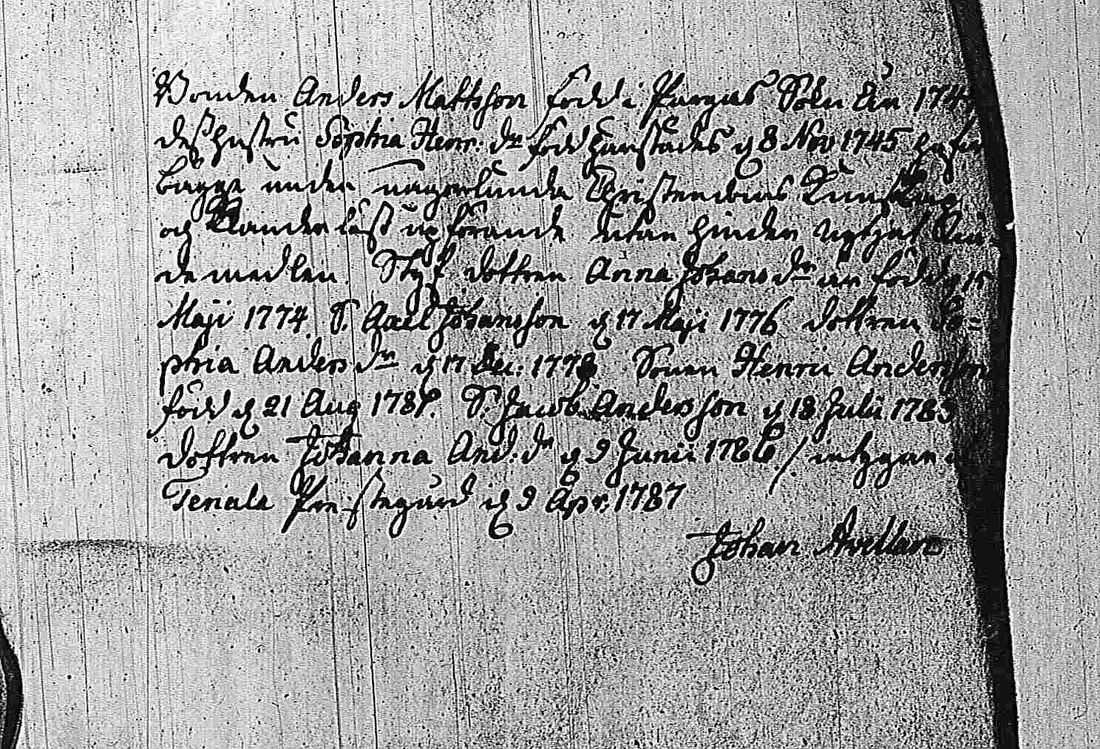 Bonden Anders Mattsson född i Pargas Sokn år 174
dess hustru Sophia Henr: dr född härstädes d 8 Nov 1745 hafva
bägge under någorlunda Christendoms Kunskap
och Wandel läst och förande utan hinder nytjat Nå-
demedlen. Styf dottren Anna Johans dr är född d 15
Maji 1774 S. Axel Johansson d 17 Maji 1776 dottren So-
phia Anders dr d 17 Dec: 1778 Sonen Henric Andersson
född d 21 Aug 1781. S. Jacob Andersson d 18 Julii 1783
dottren Johanna And: dr d 9 Junii 1786 / intygar
Tenala Prestegård d 9 Apr. 1787
Johan Avellan